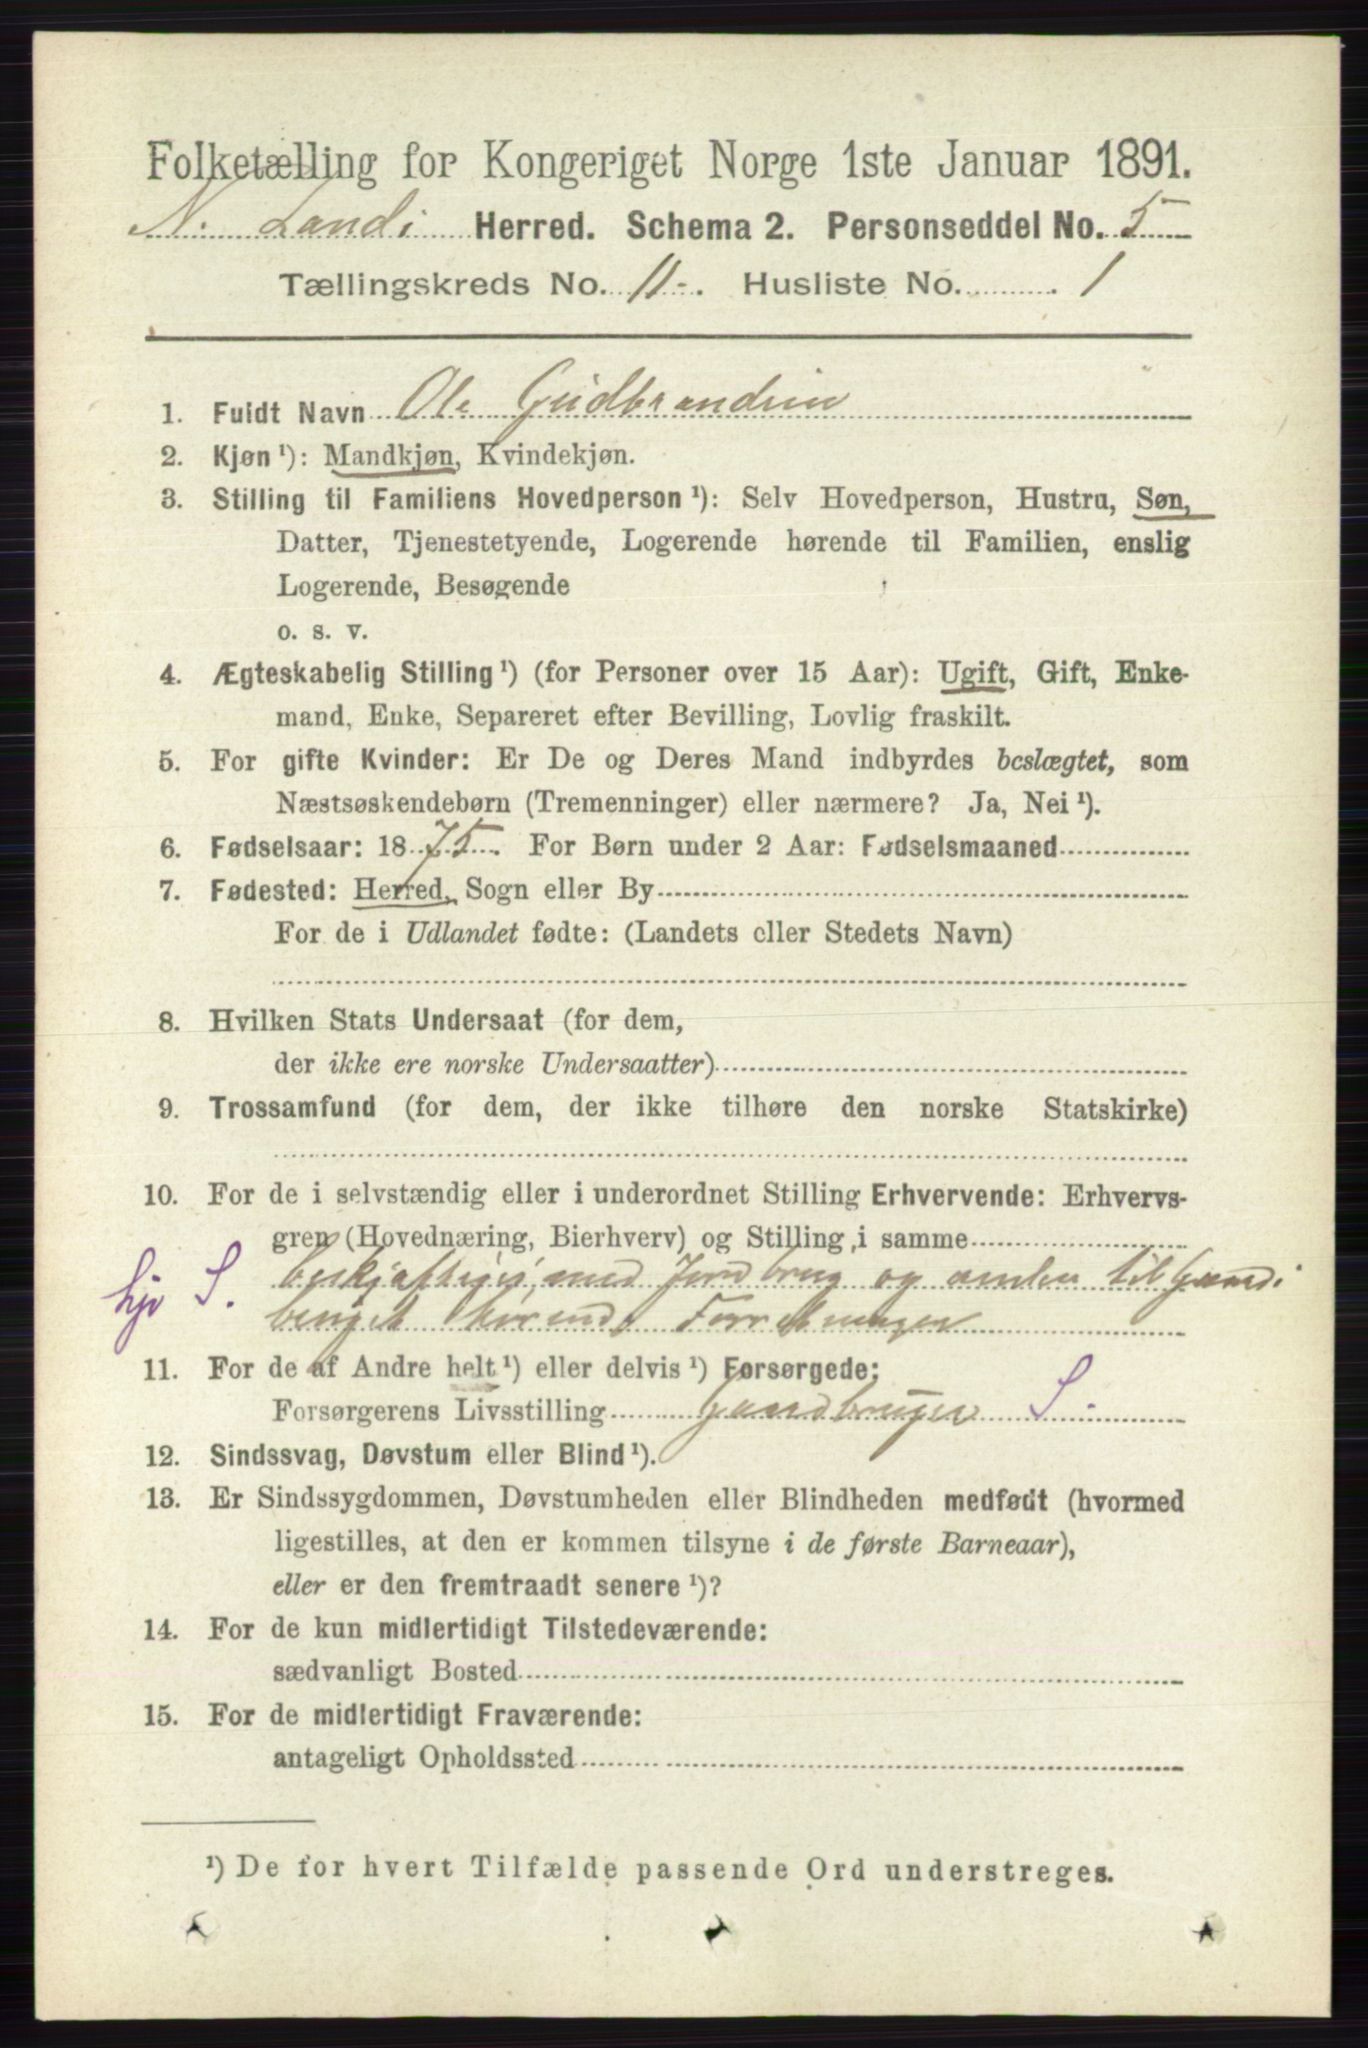 Folketælling for Kongeriget Norge 1ste Januar 1891.
N. Landi Herred. Schema 2. Personseddel No. 5
Tællingskreds No. 11 Husliste No. 1
1. Fuldt Navn Ole Gudbrandsen
2. Kjøn ¹): Mandkjøn, Kvindekjøn.
3. Stilling til Familiens Hovedperson ¹): Selv Hovedperson, Hustru, Søn,
Datter, Tjenestetyende, Logerende hørende til Familien, enslig
Logerende, Besøgende
o. s. v.
4. Ægteskabelig Stilling ¹) (for Personer over 15 Aar): Ugift, Gift, Enke-
mand, Enke, Separeret efter Bevilling, Lovlig fraskilt.
5. For gifte Kvinder: Er De og Deres Mand indbyrdes beslægtet, som
Næstsøskendebørn (Tremenninger) eller nærmere? Ja, Nei ¹).
6. Fødselsaar: 1875. For Børn under 2 Aar: Fødselsmaaned
7. Fødested: Herred, Sogn eller By
For de i Udlandet fødte: (Landets eller Stedets Navn)
8. Hvilken Stats Undersaat (for dem,
der ikke ere norske Undersaatter)
9. Trossamfund (for dem, der ikke tilhøre den norske Statskirke)
10. For de i selvstændig eller i underordnet Stilling Erhvervende: Erhvervs-
gren (Hovednæring, Bierhverv) og Stilling i samme
hjo S. beskjæftiges med Jordbrug og anden til Gaard-
bruget hørende Forretninger
11. For de af Andre helt ¹) eller delvis ¹) Forsørgede:
Forsørgerens Livsstilling Gaardbruger S.
12. Sindssvag, Døvstum eller Blind ¹).
13. Er Sindssygdommen, Døvstumheden eller Blindheden medfødt (hvormed
ligestilles, at den er kommen tilsyne i de første Barneaar),
eller er den fremtraadt senere ¹)?
14. For de kun midlertidigt Tilstedeværende:
sædvanligt Bosted
15. For de midlertidigt Fraværende:
antageligt Opholdssted
¹) De for hvert Tilfælde passende Ord understreges.